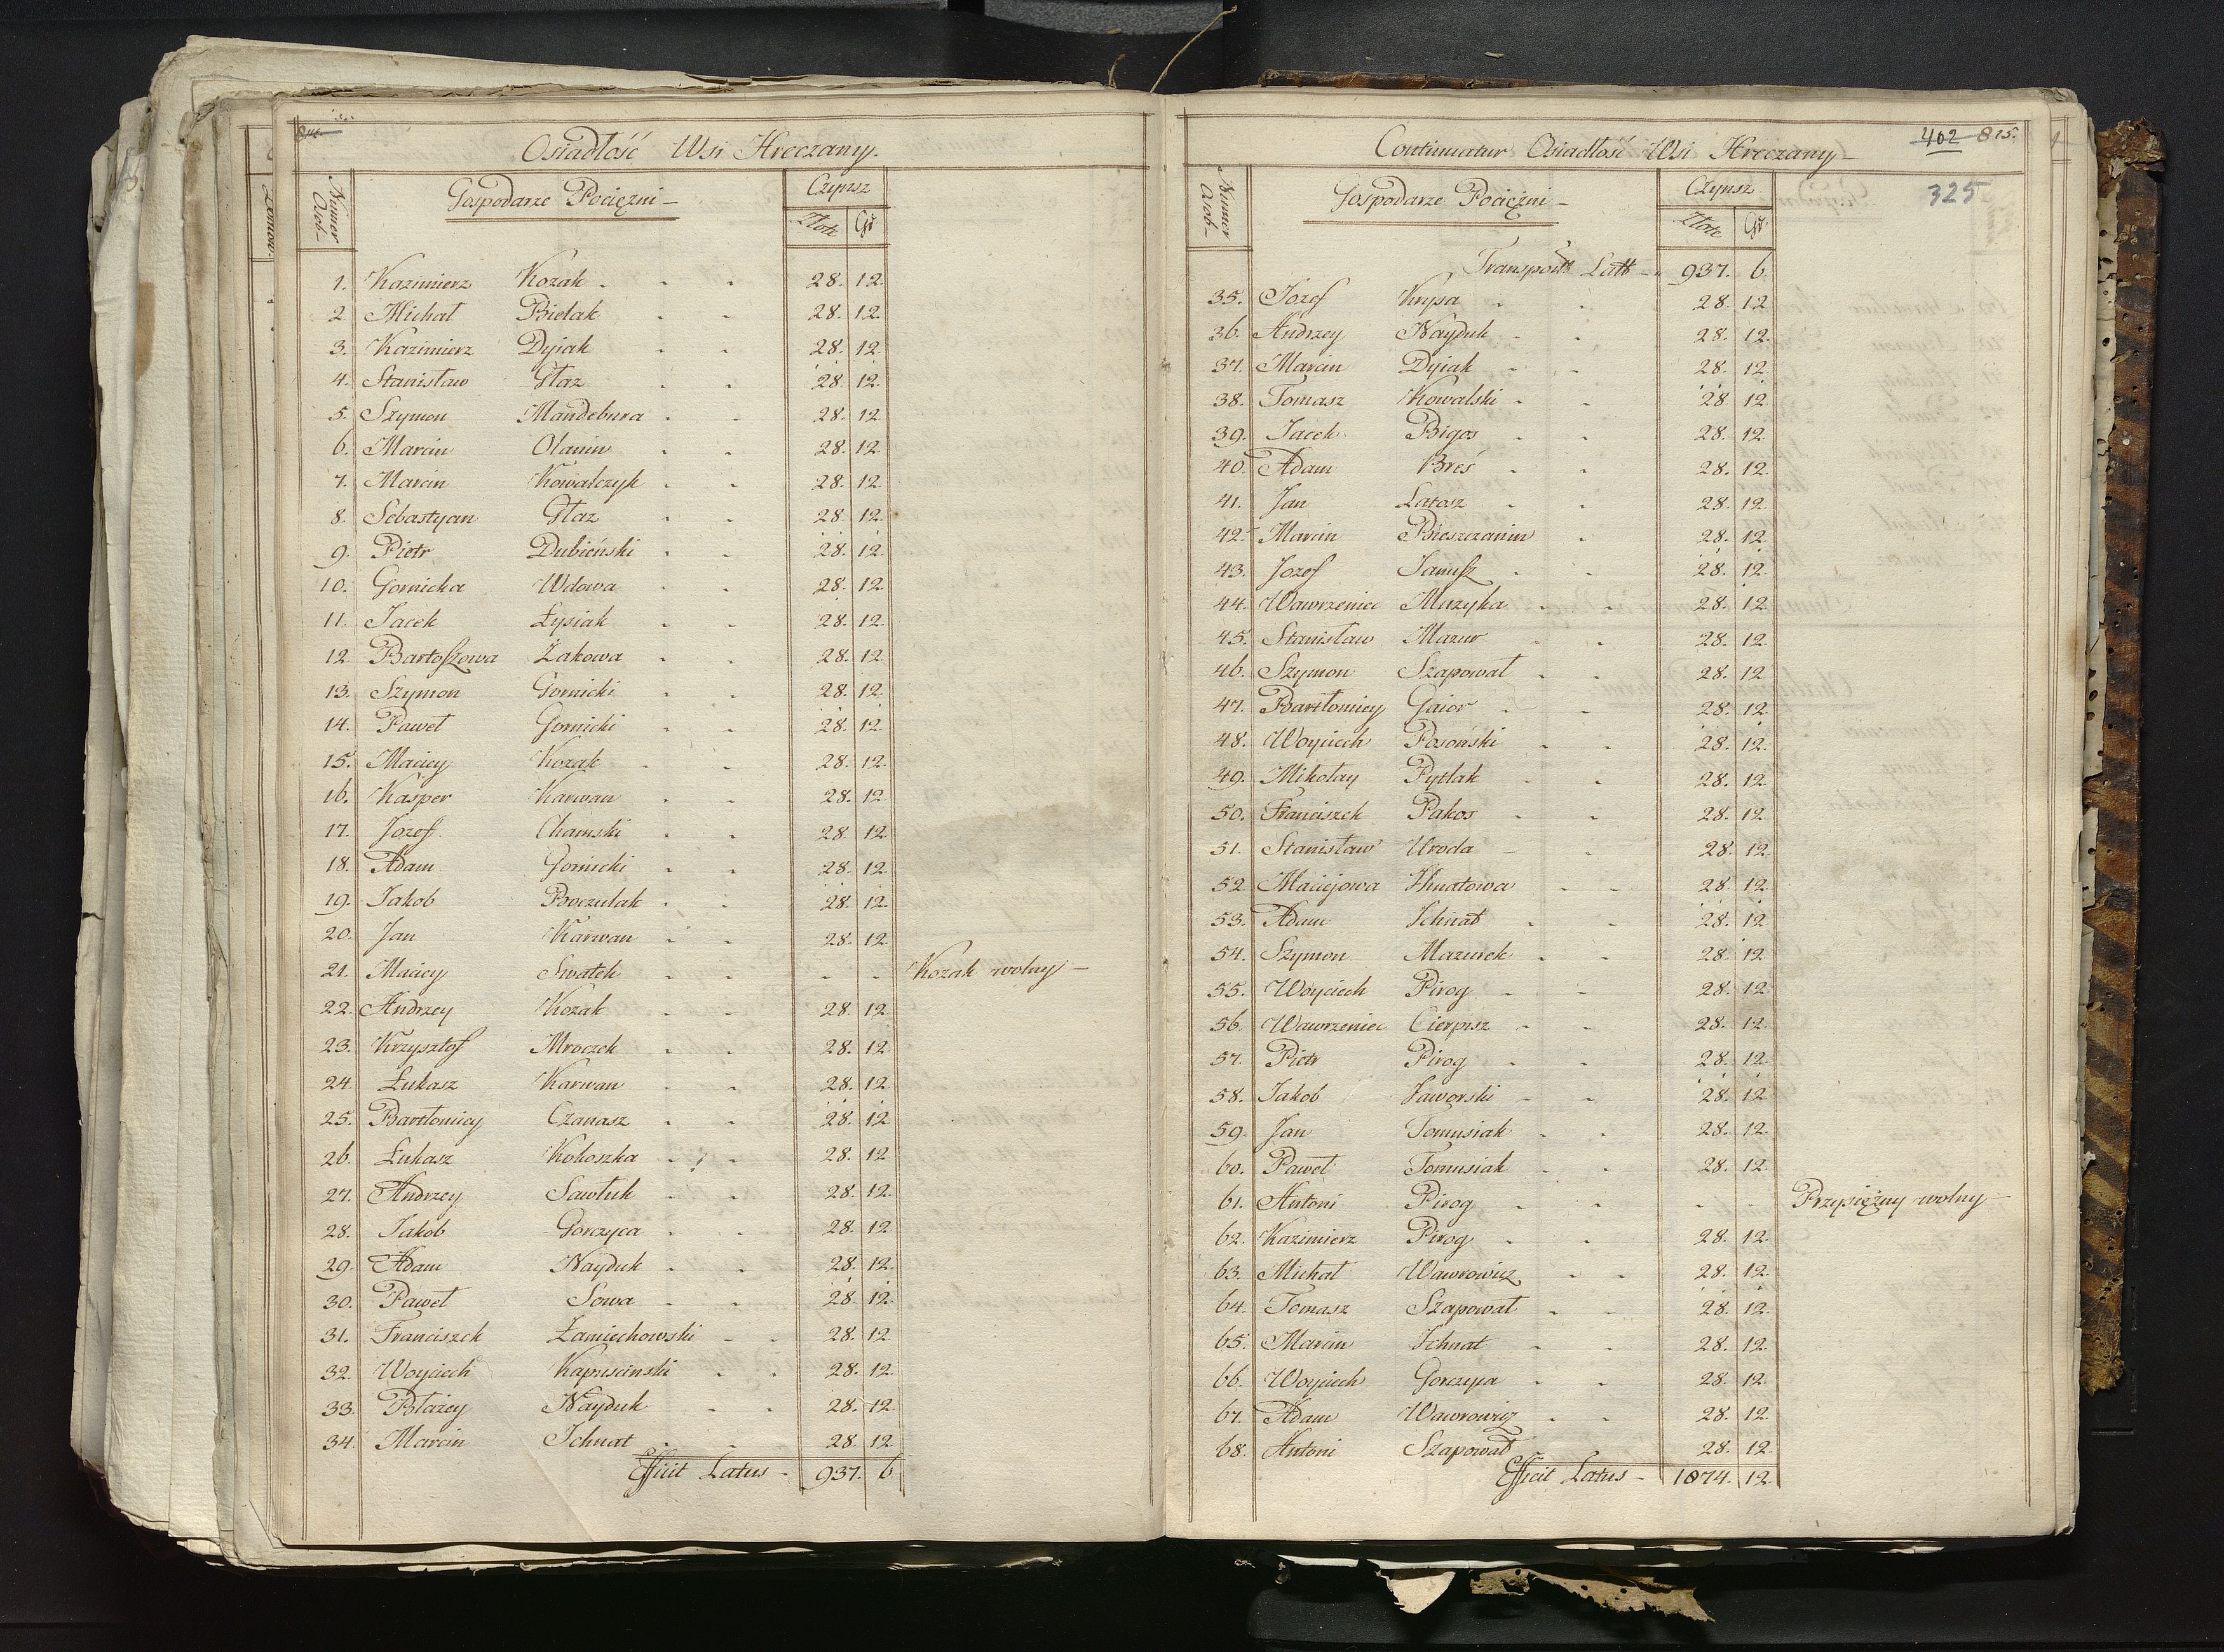 Osiadłość Wsi Hreczany.
Numer Osob
Gospodarze Pociężni
Czynsz
Złote Gr
1. Kazimierz Kozak 28. 12.
2. Michał Bielak 28. 12.
3. Kazimierz Dyiak 28. 12.
4. Stanisław Głaz 28. 12.
5. Szymon Mandebura 28. 12.
6. Marcin Olanin 28. 12.
7. Marcin Kowalczyk 28. 12.
8. Sebastyan Głaz 28. 12.
9. Piotr Dubieński 28. 12.
10. Gornicka Wdowa 28. 12.
11. Jacek Łysiak 28. 12.
12. Bartoszowa Żakowa 28. 12.
13. Szymon Gornicki 28. 12.
14. Paweł Gornicki 28. 12.
15. Maciey Kozak 28. 12.
16. Kasper Karwan 28. 12.
17. Jozef Chamski 28. 12.
18. Adam Gornicki 28. 12.
19. Jakob Boczulak 28. 12.
20. Jan Karwan 28. 12.
21. Maciey Swatek - - Kozak wolny
22. Andrzey Kozak 28. 12.
23. Krzysztof Mroczek 28. 12.
24. Łukasz Karwan 28. 12.
25. Bartłomiey Czanasz 28. 12.
26. Łukasz Kokoszka 28. 12.
27. Andrzey Sawluk 28. 12.
28. Jakob Gorczyca 28. 12.
29. Adam Nayduk 28. 12.
30. Paweł Sowa 28. 12.
31. Franciszek Łaniechowski 28. 12.
32. Woyciech Kapuscinski 28. 12.
33. Błażey Nayduk 28. 12.
34. Marcin Ichnat 28. 12.
Efficit Latus - 937. 6
Continuatur Osiadłość Wsi Hreczany
402 815.
325
Numer Osob
Gospodarze Pociężni
Czynsz
Złote Gr.
Transport Latt 937. 6.
35. Jozef Krysa 28. 12.
36. Andrzey Nayduk 28. 12.
37. Marcin Dyiak 28. 12.
38. Tomasz Kowalski 28 12
39. Jacek Bigos 28. 12.
40. Adam Breś 28. 12.
41. Jan Latosz 28. 12.
42. Marcin Bieszczanin 28. 12.
43. Jozef Janusz 28. 12.
44. Wawrzeniec Muzyka 28. 12
45. Stanisław Mazur 28. 12.
46. Szymon Szapował 28. 12
47. Bartłomiey Gaior 28. 12.
48. Woyciech Posoński 28. 12.
49. Mikołay Pytlak 28. 12.
50. Franciszek Pakos 28. 12.
51. Stanisław Uroda 28. 12.
52 Maciejowa Hnatowa 28. 12
53. Adam Ichnat 28. 12.
54. Szymon Mazurek 28. 12
55. Woyciech Pirog 28. 12.
56. Wawrzeniec Cierpisz 28. 12.
57. Piotr Pirog 28. 12.
58. Jakob Jaworski 28. 12
59. Jan Tomusiak 28. 12.
60. Paweł Tomusiak 28. 12.
61. Antoni Pirog - - Przysiężny wolny
62. Kazimierz Pirog 28. 12.
63. Michał Wawrowicz 28. 12.
64. Tomasz Szapował 28. 12.
65. Marcin Ichnat 28. 12.
66. Woyciech Gorczyca 28. 12.
67. Adam Wawrowicz 28. 12
68. Antoni Szapował 28. 12.
Efficit Latus - 1874. 12.